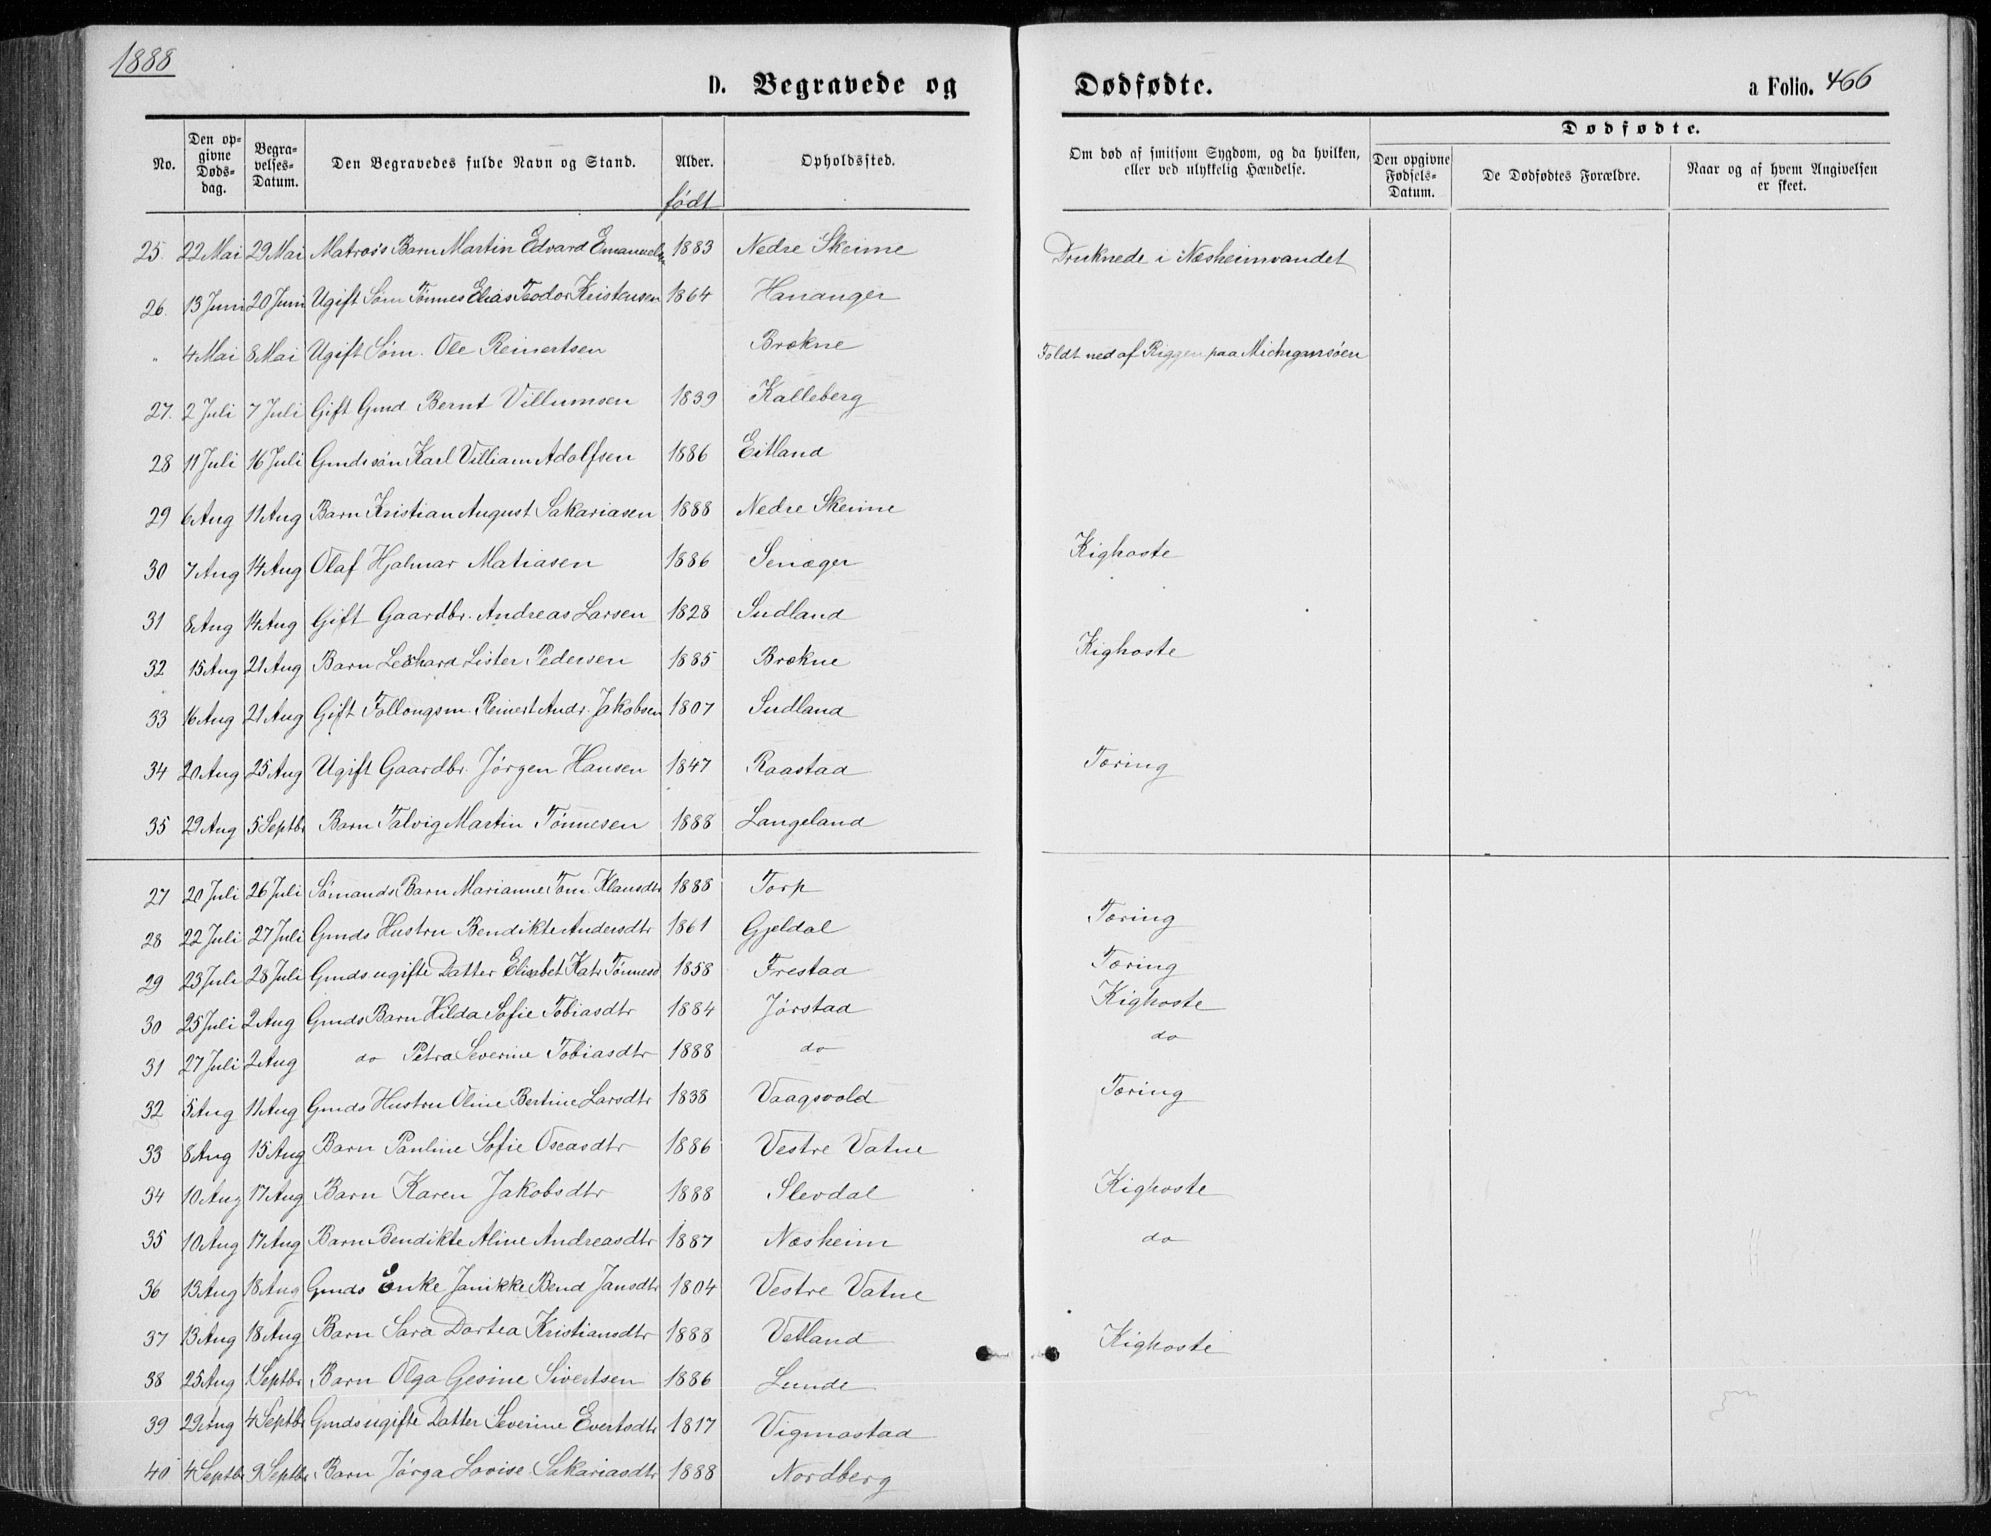 1888
D. Begravede og Dødfødte. a Folio. 466
No. Den opgivne Dødsdag. Begravelses-Datum. Den Begravedes fulde Navn og Stand. Alder. født Opholdssted. Om død af smitsom Sygdom, og da hvilken, eller ved ulykkelig Hændelse. Dødfødte. Den opgivne Fødsels-Datum. De Dødfødtes Forældre. Naar og af hvem Angivelsen er skeet.
25. 22 Mai 29 Mai Matros's Barn Martin Edvard Emanuels. 1883 Nedre Skeime Druknede i Næsheimvandet
26. 13 Juni 20 Juni Ugift Søm Tønnes Elias Teodor Kristensen 1864 Hananger
" 4 Mai 8 Mai Ugift Søm. Ole Reinertsen Brekne Faldt ned af Riggen paa Michigansøen
27. 2 Juli 7 Juli Gift Gmd Bernt Villumsen 1839 Kalleberg
28 11 Juli 16 Juli Gmds søn Karl Villiam Adolfsen 1886 Eitland
29 6 Aug 11 Aug Barn Kristian August Sakariasen 1888 Nedre Skeime
30 7 Aug 14 Aug Olaf Hjalmar Matiasen 1886 Seneger Kighoste
31 8 Aug 14 Aug Gift Gaardbr. Andreas Larsen 1828 Sudland
32 15 Aug 21 Aug Barn Leohard Lister Pedersen 1885 Brekne Kighoste
33 16 Aug 21 Aug Gift Follougsm. Reinert Andr. Jakobsen 1807 Sudland
34 20 Aug 25 Aug Ugift Gaardbr. Jørgen Hansen 1847 Raastad Tæring
35 29 Aug 5 Septbr Barn Talvig Martin Tønnesen 1888 Langeland
27 20 Juli 26 Juli Sømands Barn Marianne Tom. Klausdtr 1888 Torp
28 22 Juli 27 Juli Gmds Hustru Bendikte Andersdtr 1861 Gjeldal Tæring
29 23 Juli 28 Juli Gmds ugifte Datter Elisabet Katr Tønnesd 1858 Frestad Tæring
30 25 Juli 2 Aug Gmds Barn Hilda Sofie Tobiasdtr 1884 Jørstad Kighoste
31 27 Juli 2 Aug do Petra Severine Tobiasdtr 1888 do do
32 5 Aug 11 Aug Gmds Hustru Oline Bertine Larsdtr 1838 Vaagsvold Tæring
33 8 Aug 15 Aug Barn Pauline Sofie Oseasdtr 1886 Vestre Vatne
34 10 Aug 17 Aug Barn Karen Jakobsdtr 1888 Slevdal Kighoste
35 10 Aug 17 Aug Barn Bendikte Aline Andreasdtr 1887 Næsheim do
36 13 Aug 18 Aug Gmds Enke Janikke Bend Jansdtr 1804 Vestre Vatne
37 13 Aug 18 Aug Barn Sara Dortea Kristiansdtr 1888 Vetland Kighoste
38 25 Aug 1 Septbr Barn Olga Gesine Sivertsen 1886 Lunde
39 29 Aug 4 Septbr Gmds ugifte Datter Severine Evertsdtr 1817 Vigmostad
40 4 Septbr 9 Septbr Barn Jørga Lovise Sakariasdtr 1888 Nordberg